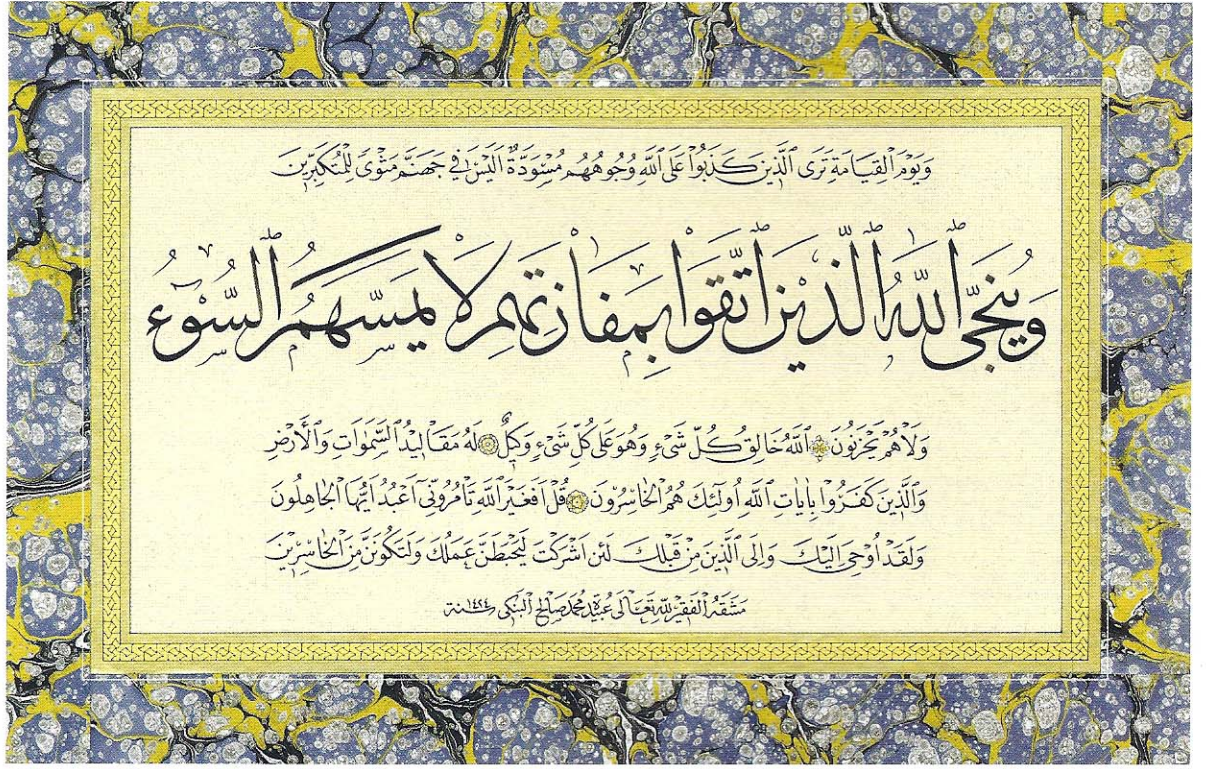 وَيَوْمَ ٱلْقِيَامَةِ تَرَى ٱلَّذِينَ كَذَبُوا۟ عَلَى ٱللَّهِ وُجُوهُهُم مُسْوَدَّةٌ اَلَيْسَ فِي جَهَنَّمَ مَثْوًى لِلْمُتَكَبِّرِينَ
وَيُنَجِّى ٱللَّهُ ٱلَّذِينَ ٱتَّقَوْا بِمَفَازَتِهِمْ لَا يَمَسُّهُمُ ٱلسُّوْٓءُ
وَلَا هُمْ يَحْزَنُونَ ۝ ٱللَّهُ خَالِقُ كُلِّ شَىْءٍ وَهُوَ عَلَى كُلِّ شَىْءٍ وَكِيلٌ ۝ لَهُ مَقَالِيدُ ٱلسَّمٰوَاتِ وَٱلْأَرْضِ
وَٱلَّذِينَ كَفَرُوا بِاٰيَاتِ ٱللَّهِ اُولَٰئِكَ هُمُ ٱلْخَاسِرُونَ ۝ قُلْ اَفَغَيْرَ ٱللَّهِ تَأْمُرُونِّى اَعْبُدُ اَيُّهَا ٱلْجَاهِلُونَ
وَلَقَدْ اُوحِىَ اِلَيْكَ وَاِلَى ٱلَّذِينَ مِنْ قَبْلِكَ لَئِنْ اَشْرَكْتَ لَيَحْبَطَنَّ عَمَلُكَ وَلَتَكُونَنَّ مِنَ ٱلْخَاسِرِينَ
مَشَقَهُ ٱلْفَقِيرُ لِلَّهِ تَعَالَى عُبَيْدَة مُحَمَّد صَالِح ٱلْبَنْكِى سنة ١٤٢٤